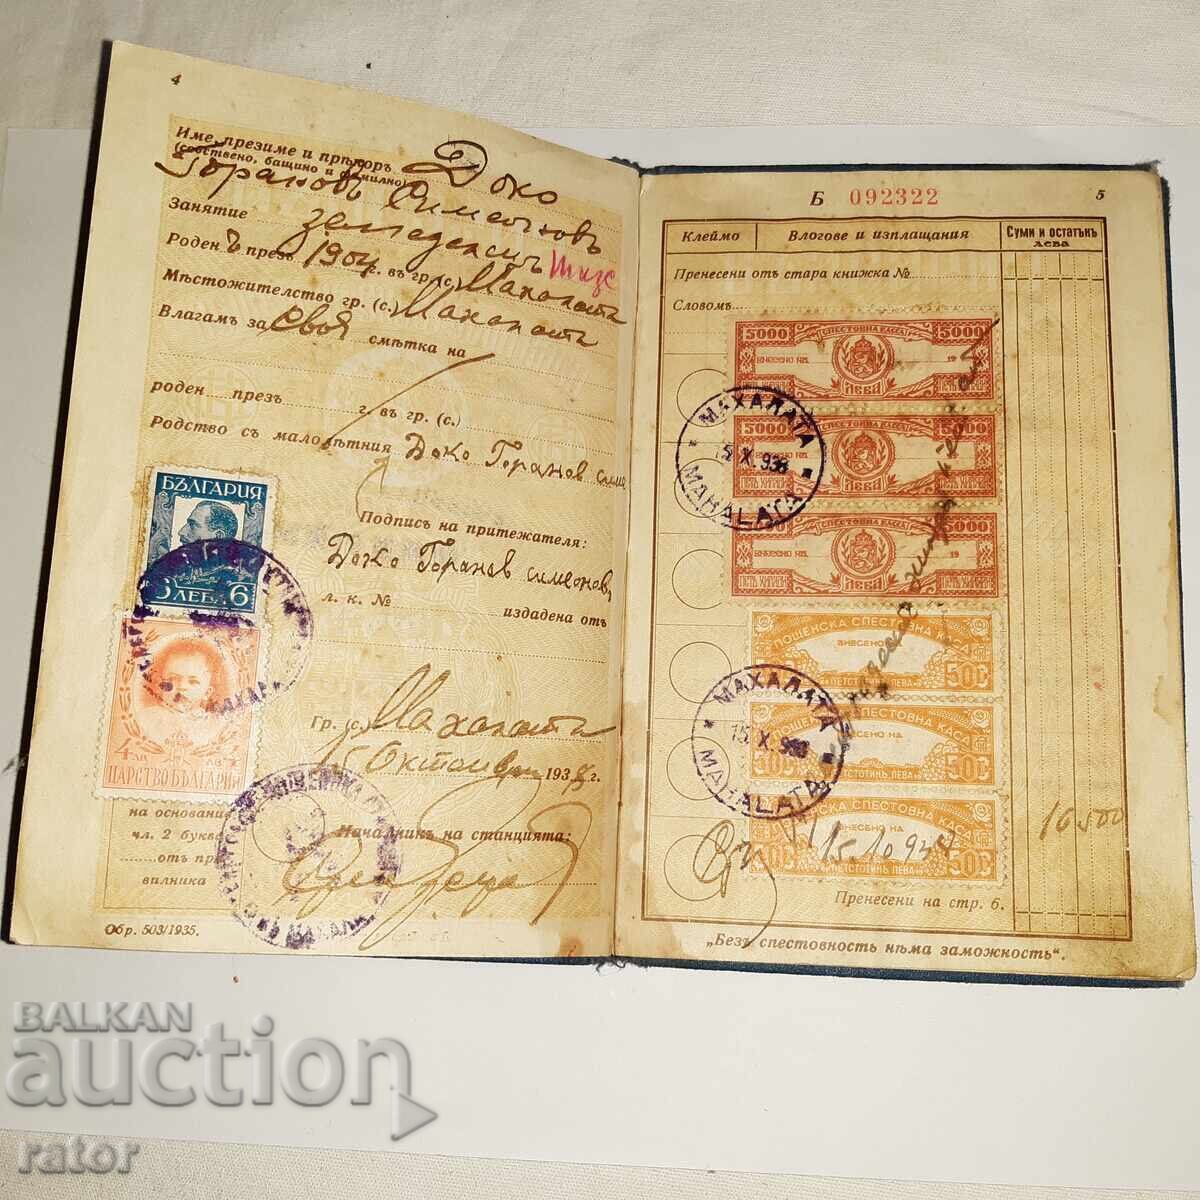 4
Име, презиме и прѣкоръ Доко
(собствено, бащино и фамилно)
Горановъ Симеоновъ
Занятие земледелецъ
Роденъ презъ 1904 г. въ гр. (с.) Махалата
Мѣстожителство гр. (с.) Махалата
Влагамъ за своя смѣтка на
роден презъ г. въ гр. (с.)
Родство съ малолѣтния Доко Горанов
Подпись на притежателя:
Доко Горанов Симеоновъ
л. к. № издадена отъ
БЪЛГАРИЯ
ЛЕВА 6
4 ЛВ ЛВ
ЦАРСТВО БЪЛГАРИЯ
Гр. (с.) Махалата
15 Октомврий 1938 г.
на основание
чл. 2 букв
отъ пра
вилника
Началникъ на станцията:
Обр. 503/1935.
Б 092322 5
Клеймо Влогове и изплащания Суми и остатькъ лева
Пренесени отъ стара книжка №
Словомъ
5000 СПЕСТОВНА КАСА 5000
ВНЕСЕНО НА 19
ЛЕВА
5000
ВНЕСЕНО НА
ПЕТЬ ХИЛЯДИ ЛЕВА ПЕТЬ ХИЛЯДИ
СПЕСТОВНА КАСА 5000
ВНЕСЕНО НА 19
ПЕТЬ ХИЛЯДИ ЛЕВА ПЕТЬ ХИЛЯДИ
МАХАЛАТА
15.X.938
MAHALATA
ПОЩЕНСКА СПЕСТОВНА КАСА
ВНЕСЕНО НА
500
ПЕТСТОТИНЪ ЛЕВА
ПОЩЕНСКА СПЕСТОВНА КАСА
ВНЕСЕНО НА
500 500
ПЕТСТОТИНЪ ЛЕВА
МАХАЛАТА
15.X.938
MAHALATA
ПОЩЕНСКА СПЕСТОВНА КАСА
ВНЕСЕНО НА
500
ПЕТСТОТИНЪ ЛЕВА
15.10.938
16500
Пренесени на стр. 6.
„Безъ спестовность нѣма заможность“.
BALKAN
auction
rator